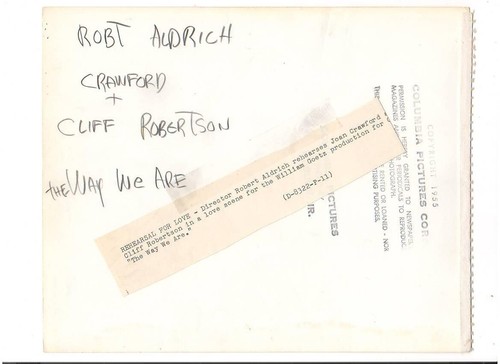 ROBT ALDRICH
CRAWFORD
+
CLIFF ROBERTSON
THE WAY WE ARE
REHEARSAL FOR LOVE - Director Robert Aldrich rehearses Joan Crawford
Cliff Robertson in a love scene for the William Goetz production for
"The Way We Are."
(D-8122-P-11)
COPYRIGHT 1955
COLUMBIA PICTURES COR
PERMISSION IS HEREBY GRANTED TO NEWSPAPE
MAGAZINES AND PERIODICALS TO REPRODUC
PHOTOGRAPH.
RENTED OR LOANED - NOR
TISING PURPOSES.